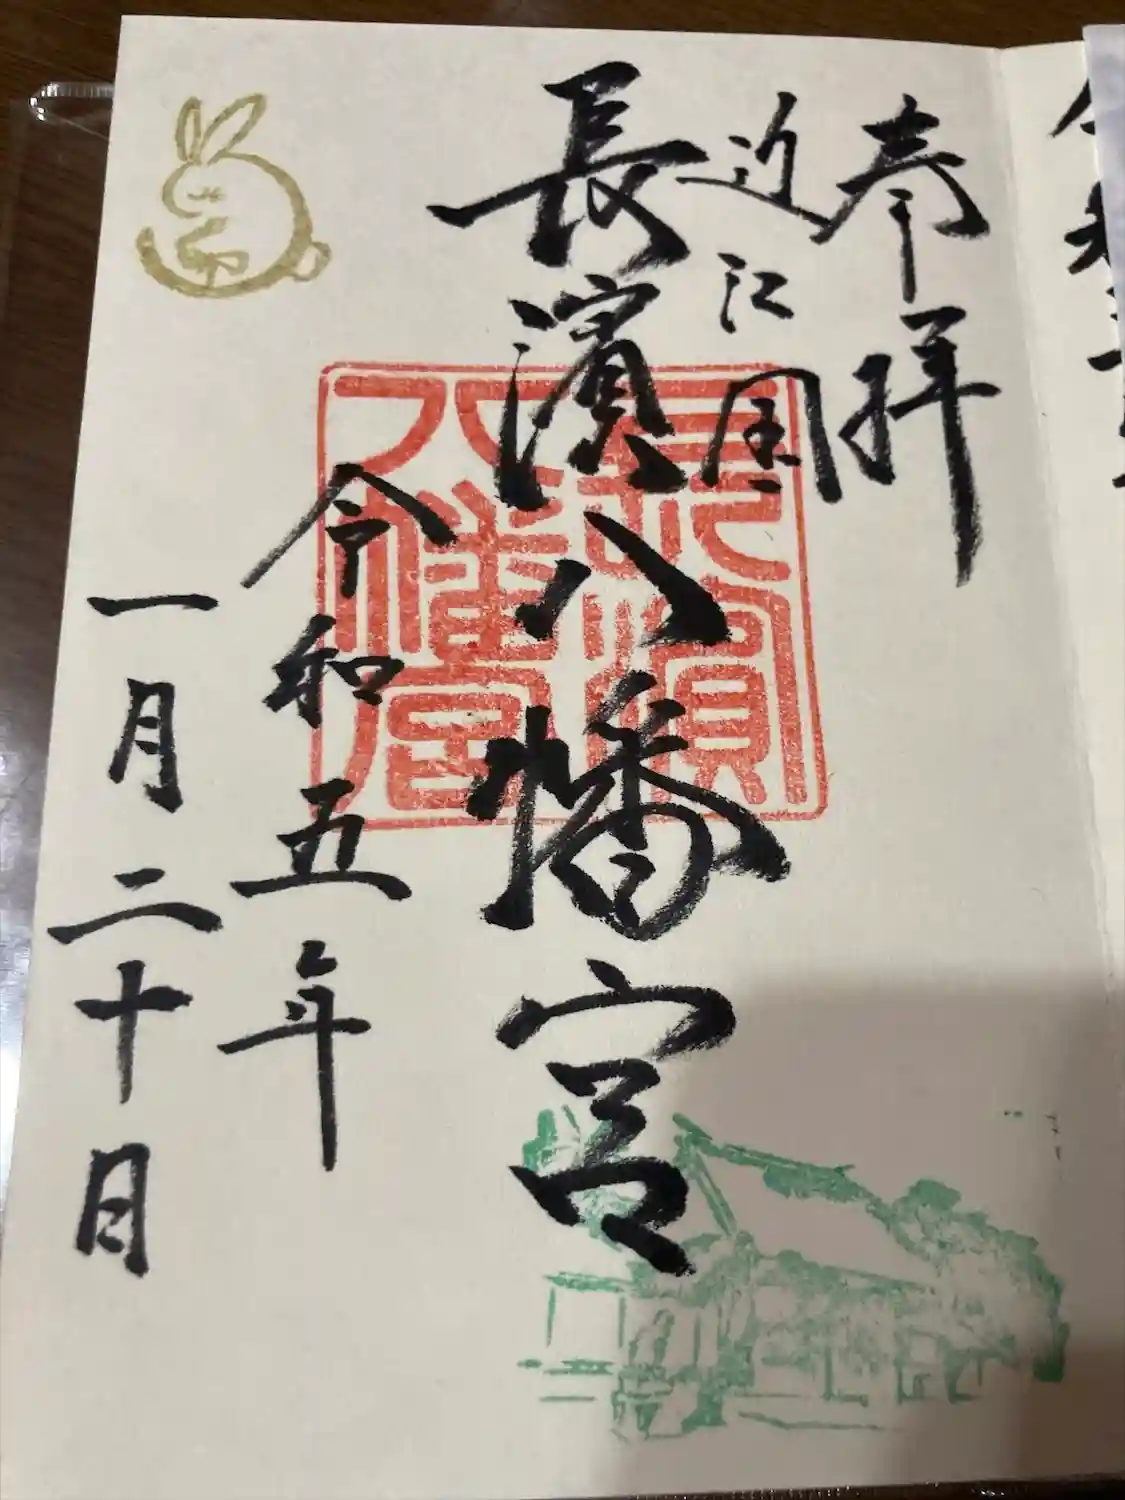 奉拝
近江国
長濱八幡宮
長濱
八幡宮
令和五年
一月二十日
卯